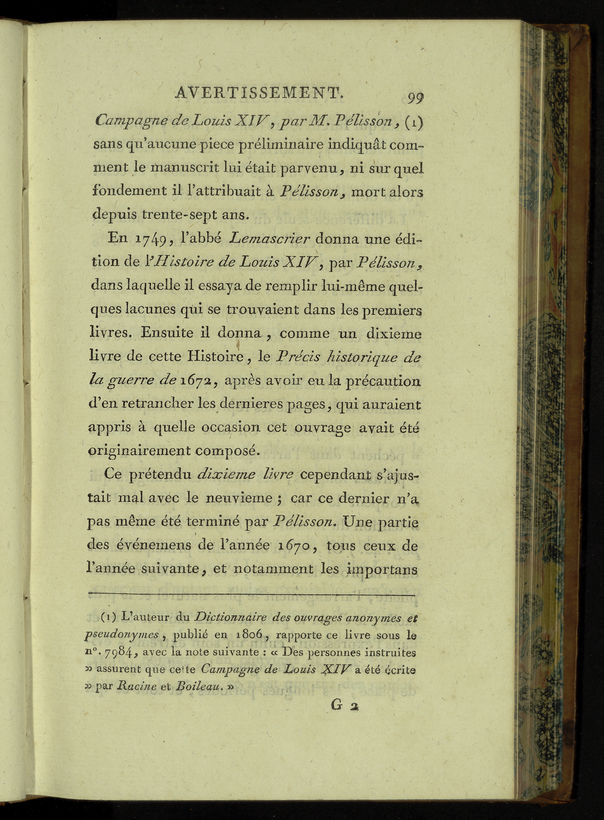 AVERTISSEMENT. 99
Campagne de Louis XIV, par M. Pélisson, (1)
sans qu'aucune piece préliminaire indiquât com-
ment le manuscrit lui était parvenu, ni sur quel
fondement il l'attribuait à Pélisson, mort alors
depuis trente-sept ans.
En 1749, l'abbé Lemascrier donna une édi-
tion de l'Histoire de Louis XIV, par Pélisson,
dans laquelle il essaya de remplir lui-même quel-
ques lacunes qui se trouvaient dans les premiers
livres. Ensuite il donna, comme un dixieme
livre de cette Histoire, le Précis historique de
la guerre de 1672, après avoir eu la précaution
d'en retrancher les dernieres pages, qui auraient
appris à quelle occasion cet ouvrage avait été
originairement composé.
Ce prétendu dixieme livre cependant s'ajus-
tait mal avec le neuvieme ; car ce dernier n'a
pas même été terminé par Pélisson. Une partie
des événemens de l'année 1670, tous ceux de
l'année suivante, et notamment les importans
(1) L'auteur du Dictionnaire des ouvrages anonymes et
pseudonymes, publié en 1806, rapporte ce livre sous le
n°. 7984, avec la note suivante : « Des personnes instruites
» assurent que cette Campagne de Louis XIV a été écrite
» par Racine et Boileau. »
G 2